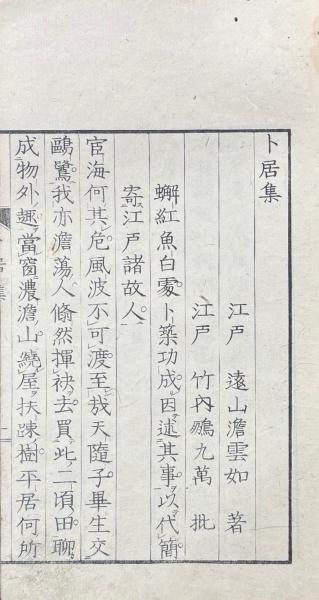 卜居集
江戶 遠山澹雲如 著
江戶 竹內鵬九萬 批
蠏紅魚白處卜築功成因述其事以代簡
寄江戶諸故人
宦海何其危風波不可渡至哉天隨子畢生交
鷗鷺我亦澹蕩人翛然揮袂去買此二頃田聊
成物外趣當窗濃澹山繞屋扶踈樹平居何所